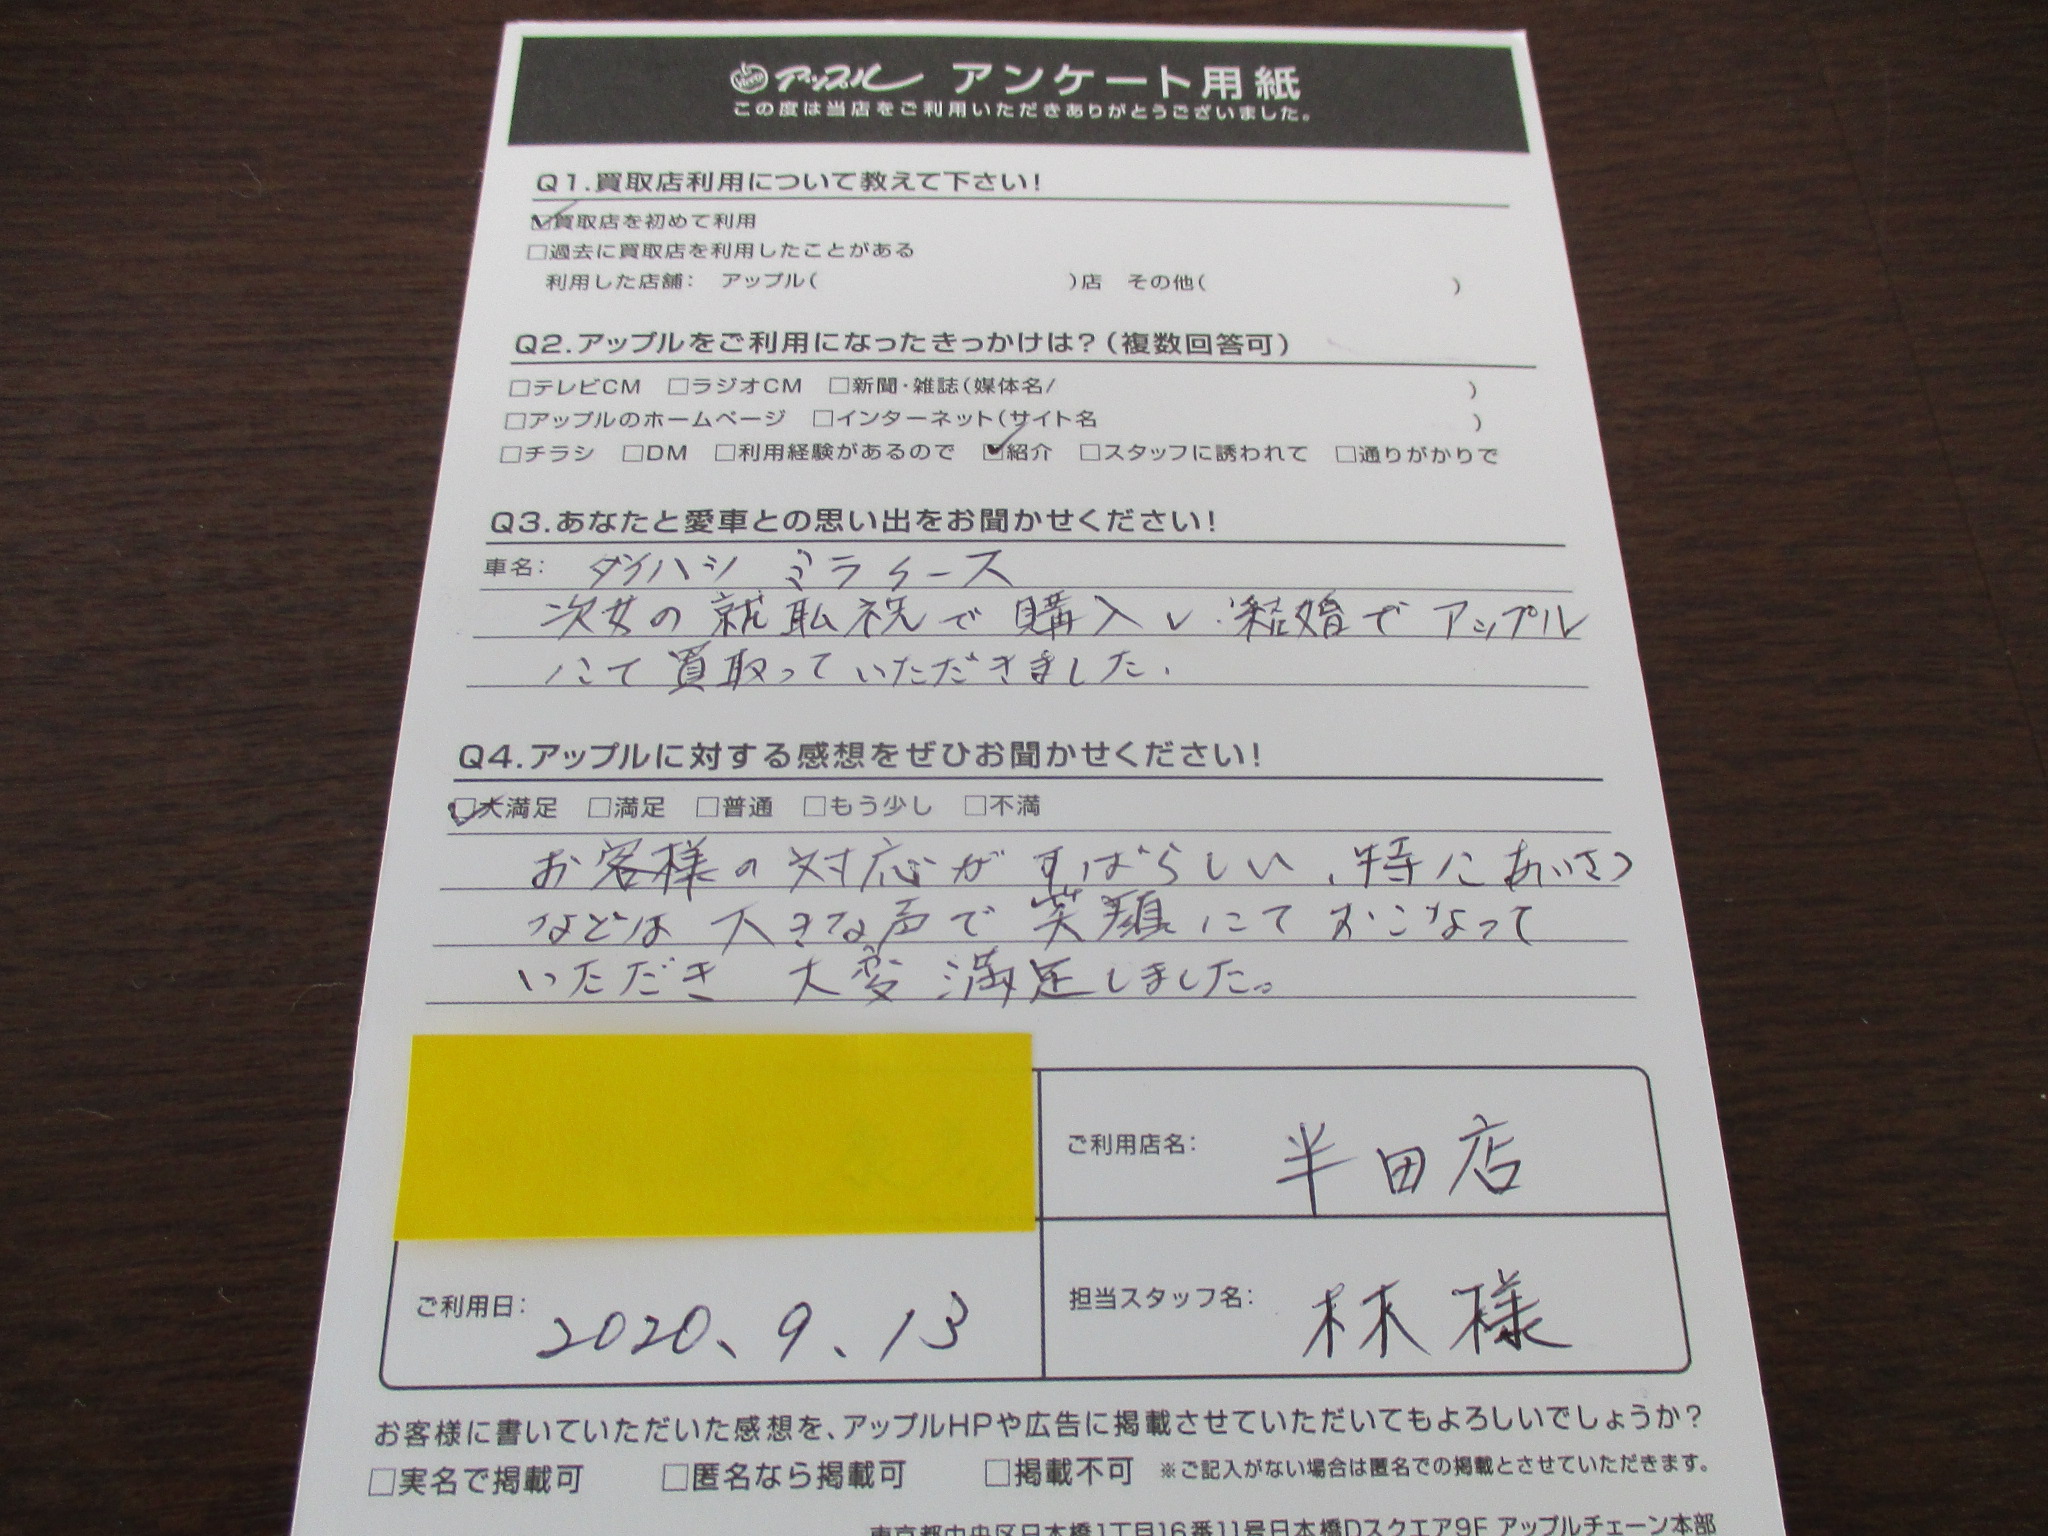 アップル アンケート用紙
この度は当店をご利用いただきありがとうございました。
Q1.買取店利用について教えて下さい!
☑買取店を初めて利用
□過去に買取店を利用したことがある
利用した店舗: アップル( )店 その他( )
Q2.アップルをご利用になったきっかけは?(複数回答可)
□テレビCM □ラジオCM □新聞・雑誌(媒体名/ )
□アップルのホームページ □インターネット(サイト名 )
□チラシ □DM □利用経験があるので ☑紹介 □スタッフに誘われて □通りがかりで
Q3.あなたと愛車との思い出をお聞かせください!
車名: ダイハツ ミライース
次女の就職祝で購入し、結婚でアップル
にて買取っていただきました.
Q4.アップルに対する感想をぜひお聞かせください!
☑大満足 □満足 □普通 □もう少し □不満
お客様の対応がすばらしい、特にあいさつ
などは大きな声で笑顔にておこなって
いただき 大変満足しました。
ご利用店名: 半田店
ご利用日: 2020、9、13
担当スタッフ名: 林様
お客様に書いていただいた感想を、アップルHPや広告に掲載させていただいてもよろしいでしょうか?
□実名で掲載可 □匿名なら掲載可 □掲載不可 ※ご記入がない場合は匿名での掲載とさせていただきます。
東京都中央区日本橋1丁目16番11号日本橋Dスクエア9F アップルチェーン本部